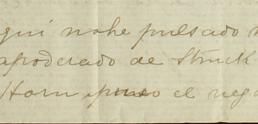 qui no he pulsado
apoderado de Struck
Horn puso el neg